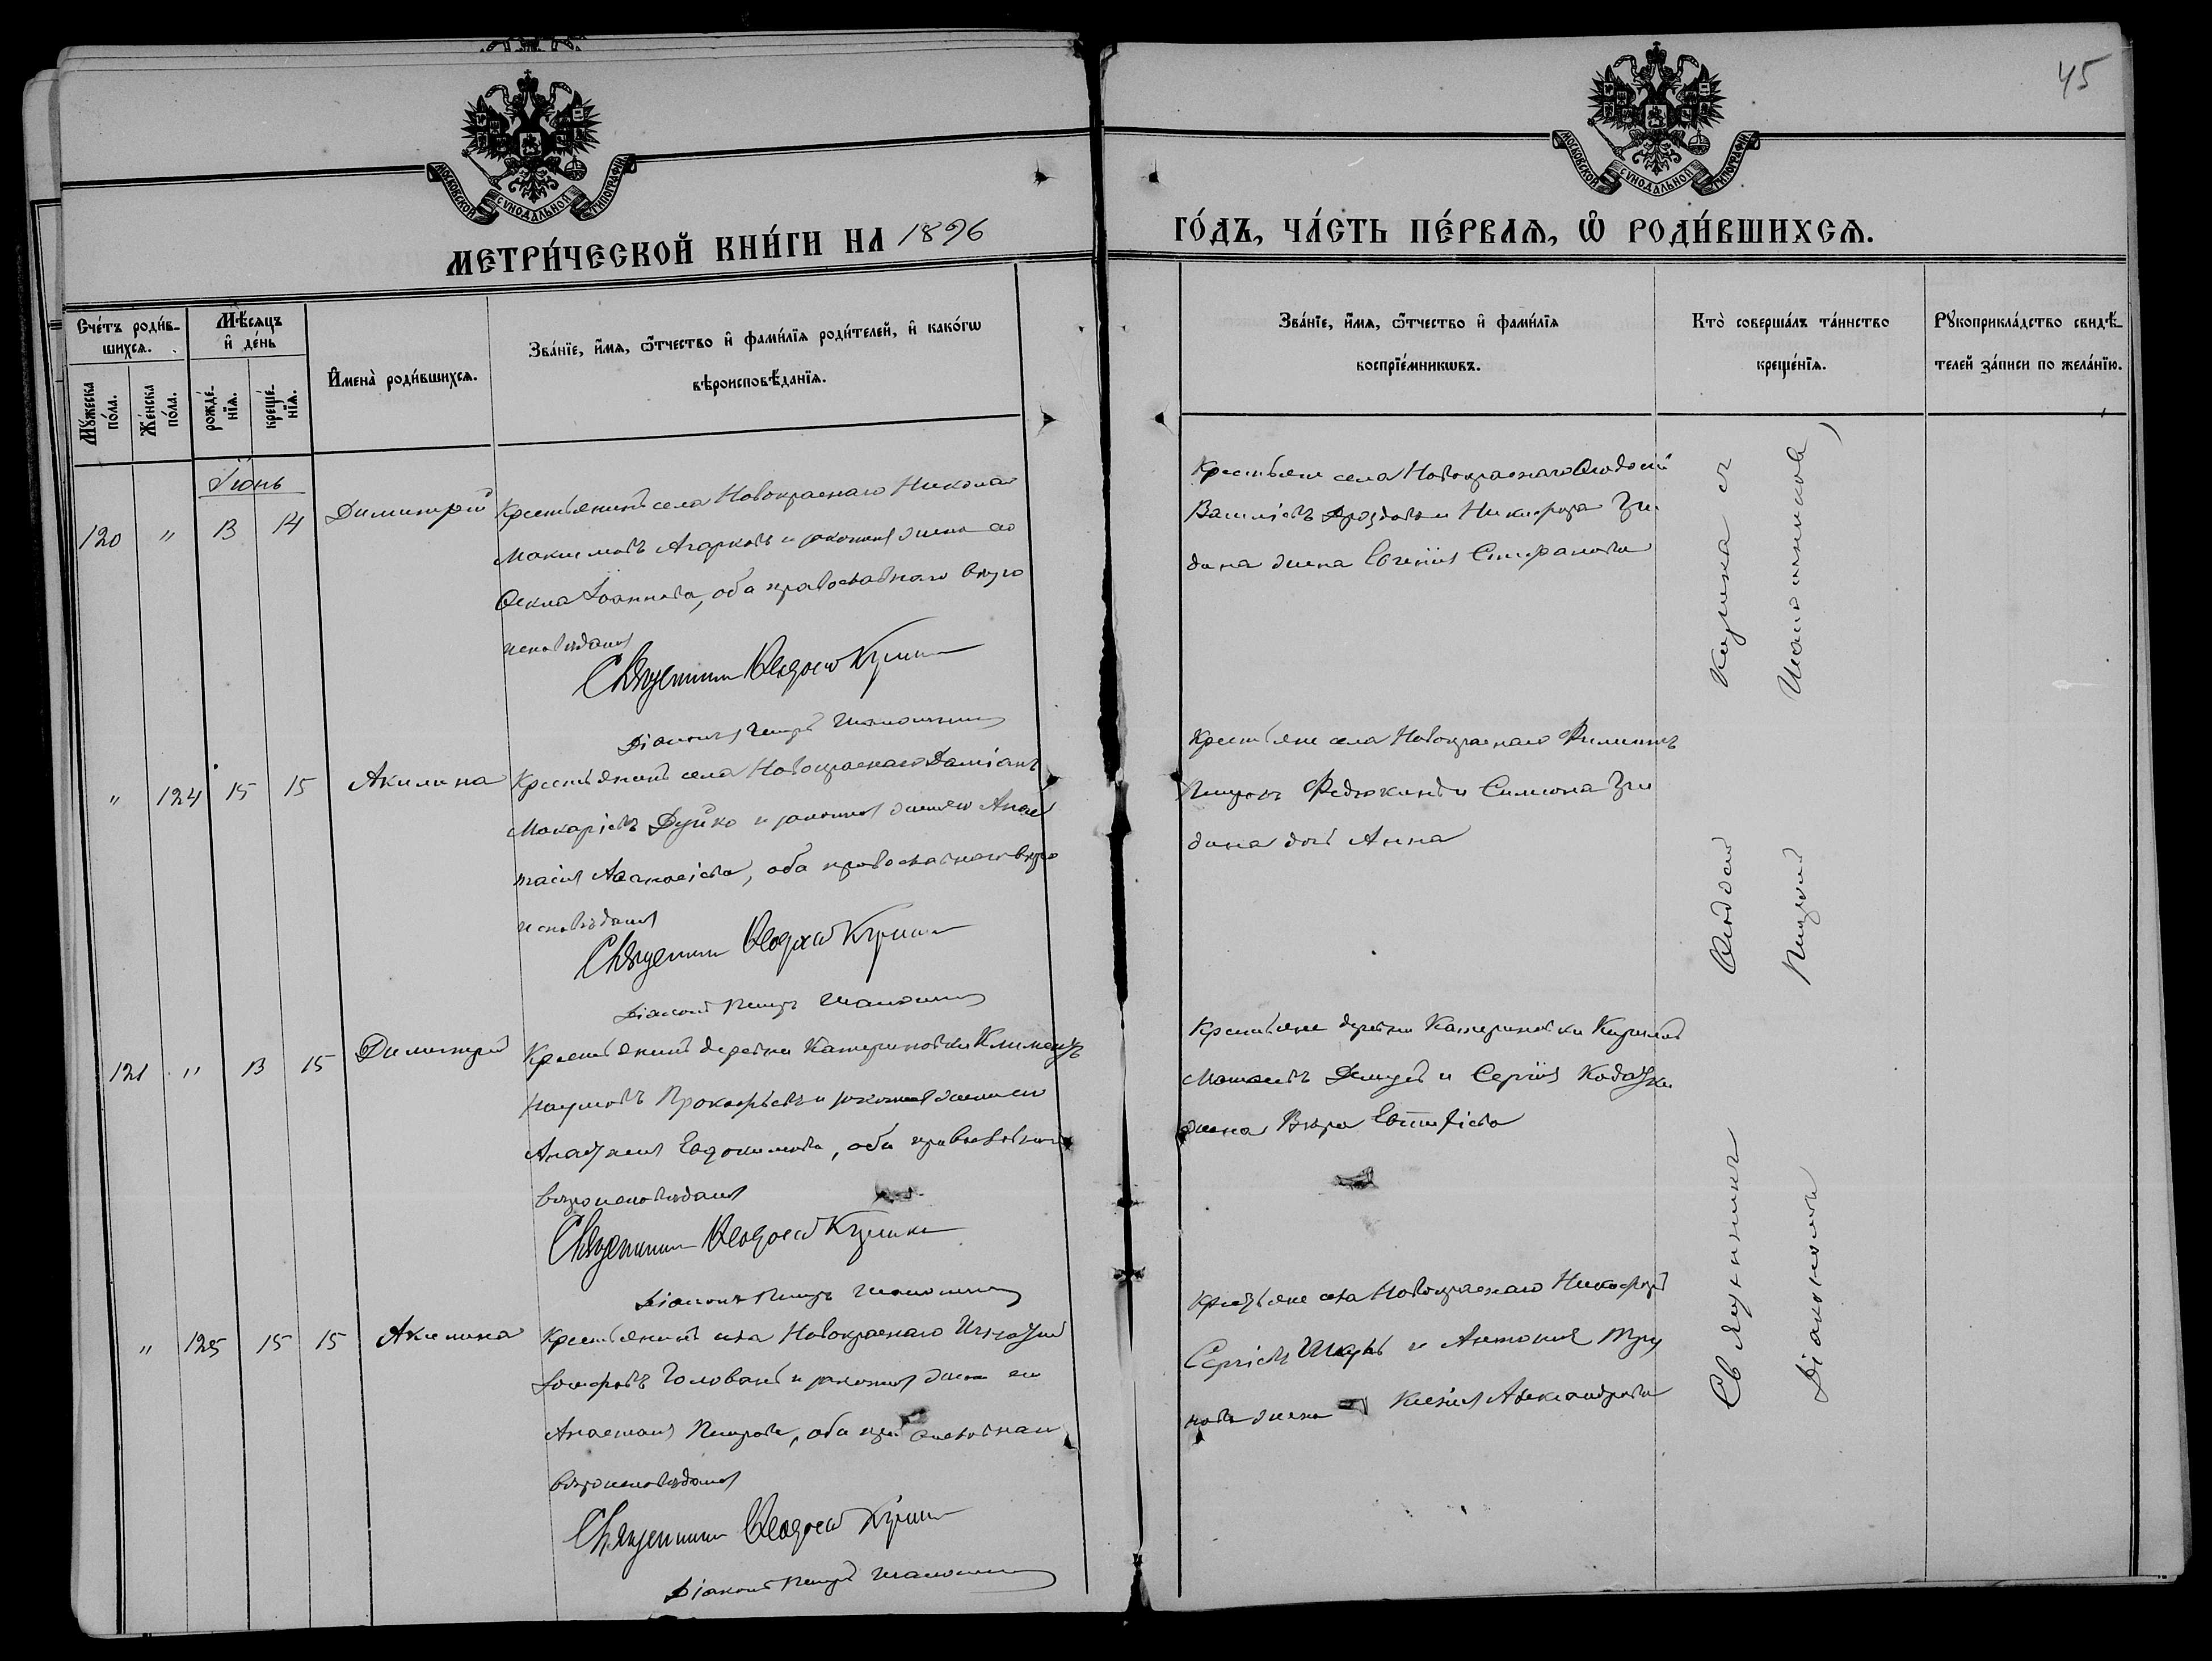 45
МОСКОВСКОЙ СѴНОДАЛЬНОЙ ТИПОГРАФІИ
МОСКОВСКОЙ СѴНОДАЛЬНОЙ ТИПОГРАФІИ
МЕТРИ́ЧЕСКОЙ КНИ́ГИ НА 1896
ГО́ДЪ, ЧА́СТЬ ПЕ́РВАѦ, Ѡ РОДИ́ВШИХСѦ.
Сче́тъ роди́в-
шихсѧ.
Мꙋжеска по́ла.
Же́нска по́ла.
Мѣ́сѧцъ и҆ де́нь
рожде́-
нїѧ.
креще́-
нїѧ.
И҆мена̀ роди́вшихсѧ.
Зва́нїе, и҆́мѧ, ѻ҆́тчество и҆ фами́лїѧ роди́телей, и҆ како́гѡ
вѣроисповѣ́данїѧ.
Зва́нїе, и҆́мѧ, ѻ҆́тчество и҆ фами́лїѧ
воспрїе́мникѡвъ.
Кто̀ соверша́лъ та́инство
креще́нїѧ.
Рꙋкоприкла́дство свидѣ́-
телей за́писи по жела́нїю.
Іюнь
120 " 13 14 Димитрій
Крестьянинъ села Новокраснаго Николай
Максимовъ Агарковъ и законная жена его
Ѳекла Іоаннова, оба православнаго вѣро
исповѣданія
Священник Ѳеодосій
Діаконъ Петръ
Крестьяне села Новокраснаго Ѳеодосій
Василіевъ Дроздовъ и Никифора
дина жена Евгенія Стефанова
" 124 15 15 Акилина
Крестьянинъ села Новокраснаго Даміанъ
Макаріевъ Дуйко и законная жена его Анас
тасія Аѳанасіева, оба православнаго вѣро
исповѣданія
Священник Ѳеодосій
Діаконъ Петръ
Крестьяне села Новокраснаго Филиппъ
Петровъ Федюкинъ и Симеона
дина дочь Анна
121 " 13 15 Димитрій
Крестьянинъ деревни Катериновки Климентъ
Наумовъ Прокофьевъ и законная жена его
Анастасія Евдокимова, оба православнаго
вѣроисповѣданія
Священник Ѳеодосій
Діаконъ Петръ
Крестьяне деревни Катериновки Кириллъ
и Сергія
жена Вѣра
" 125 15 15 Акилина
Крестьянинъ села Новокраснаго Игнатій
Іосифовъ Голованъ и законная жена его
Анастасія Петрова, оба православнаго
вѣроисповѣданія
Священник Ѳеодосій
Діаконъ Петръ
Крестьяне села Новокраснаго Никифоръ
Сергіевъ и Антонія
нова жена Ксенія Александрова
Священникъ Ѳеодосій
Діакономъ